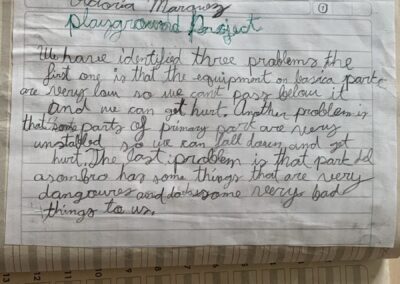 Victoria Marquez
1
Playground Project
We have identified three problems the
first one is that the equipment on basica park
are very low so we can't pass below it
and we can get hurt. Another problem is
that some parts of primary park are very
unstabled so we can fall down and get
hurt. The last problem is that park del
asombro has some things that are very
dangoures and do some very bad
things to us.
13
12
11
10
9
8